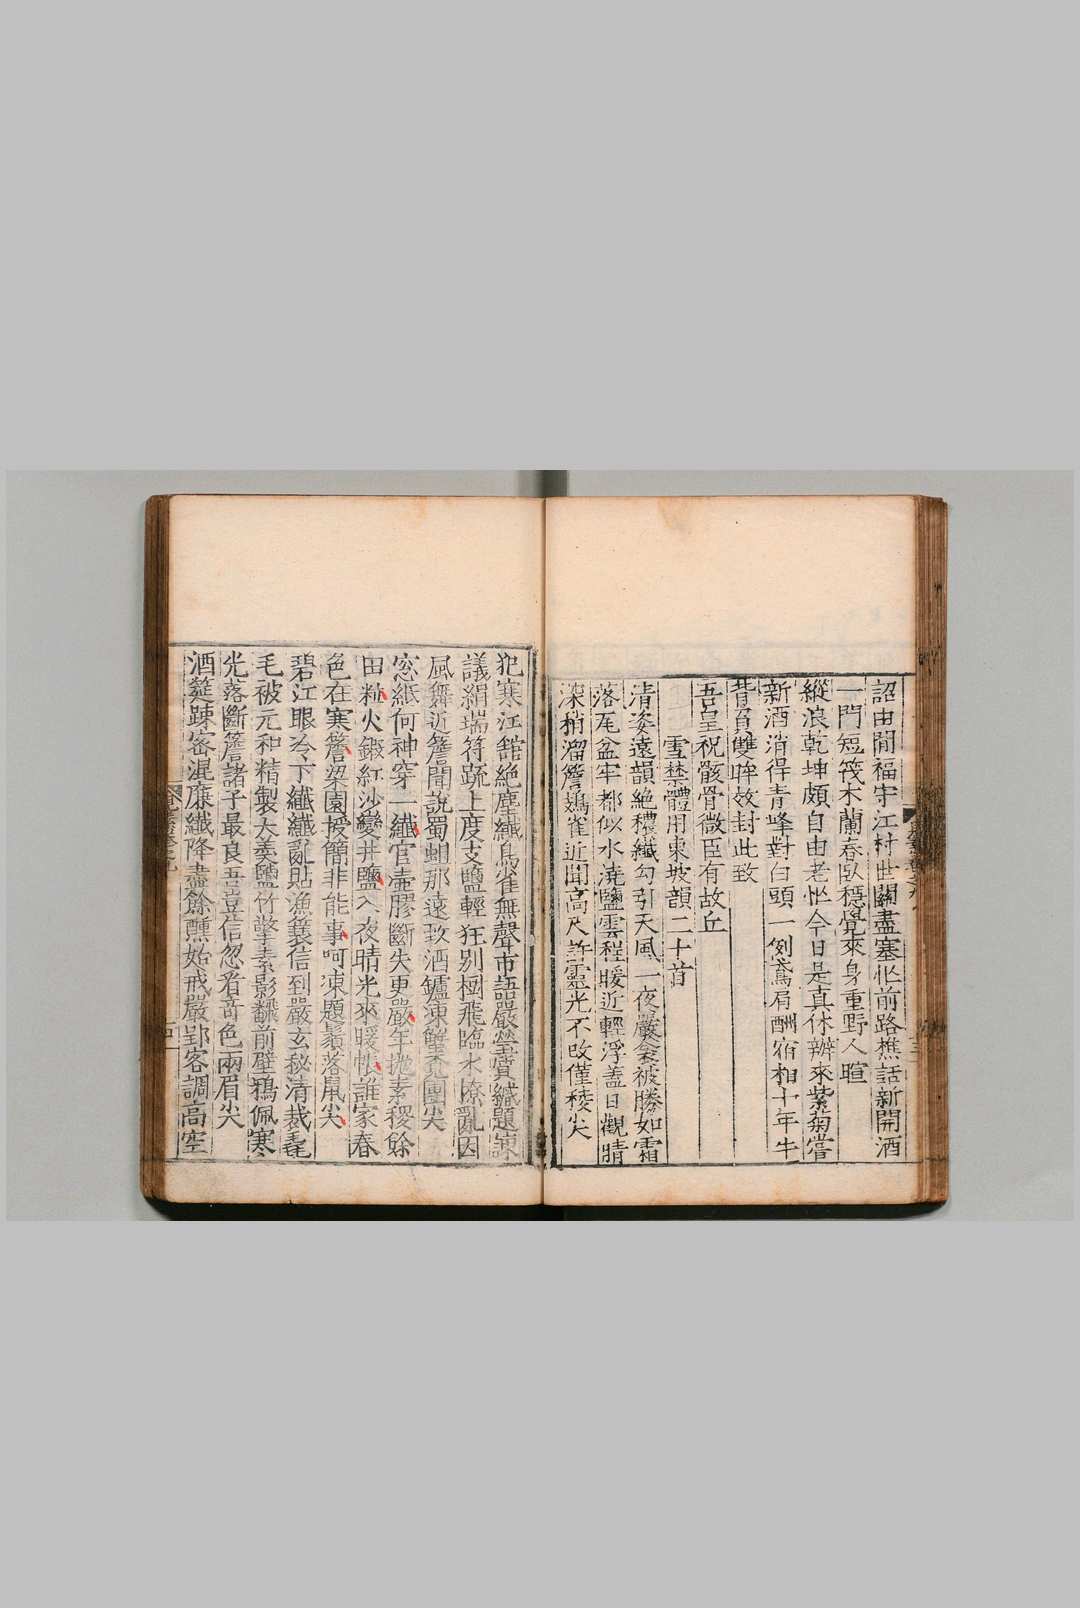 詔由閒福宇江村世關盡塞怅前路樵話新開酒
一門短筏木蘭春臥穩覺來身重野人暄
縱浪乾坤頗自由老怅今日是真休辦來紫菊嘗
新酒消得青峰對白頭一例鳶肩酬宿相十年牛
背負雙眸效封此致
吾皇祝骸骨微臣有故丘
雪禁體用東坡韻二十首
清姿遠韻絶穠纖勾引天風一夜嚴衾被勝如霜
落尾盆牢都似水澆鹽雲程暖近輕浮蓋日觀晴
深稍溜簷鵶雀近聞高尺許靈光不改僅稜尖
犯寒江館絶塵纖鳥雀無聲市語嚴瑩質緘題諫
議絹瑞符䟽上度支鹽輕狂別樹飛臨水撩亂因
風舞近簷聞說蜀蜩那遠致酒鑪凍蟹禿團尖
窓紙何神穿一纖官壺膠斷失更嚴年拋素稷餘
田粒火鍛紅沙變井鹽入夜晴光來暖帳誰家春
色在寒簷梁園授簡非能事呵凍題鬚落鼠尖
碧江眼冷下纖纖亂貼漁簑信到嚴玄秘清裁毳
毛被元和精製大羹鹽竹擎素影飜前壁鴉佩寒
光落斷簷諸子最良吾豈信忽看竒色兩眉尖
酒筵踈密混廉纖降盡餘醺始戒嚴郢客調高空